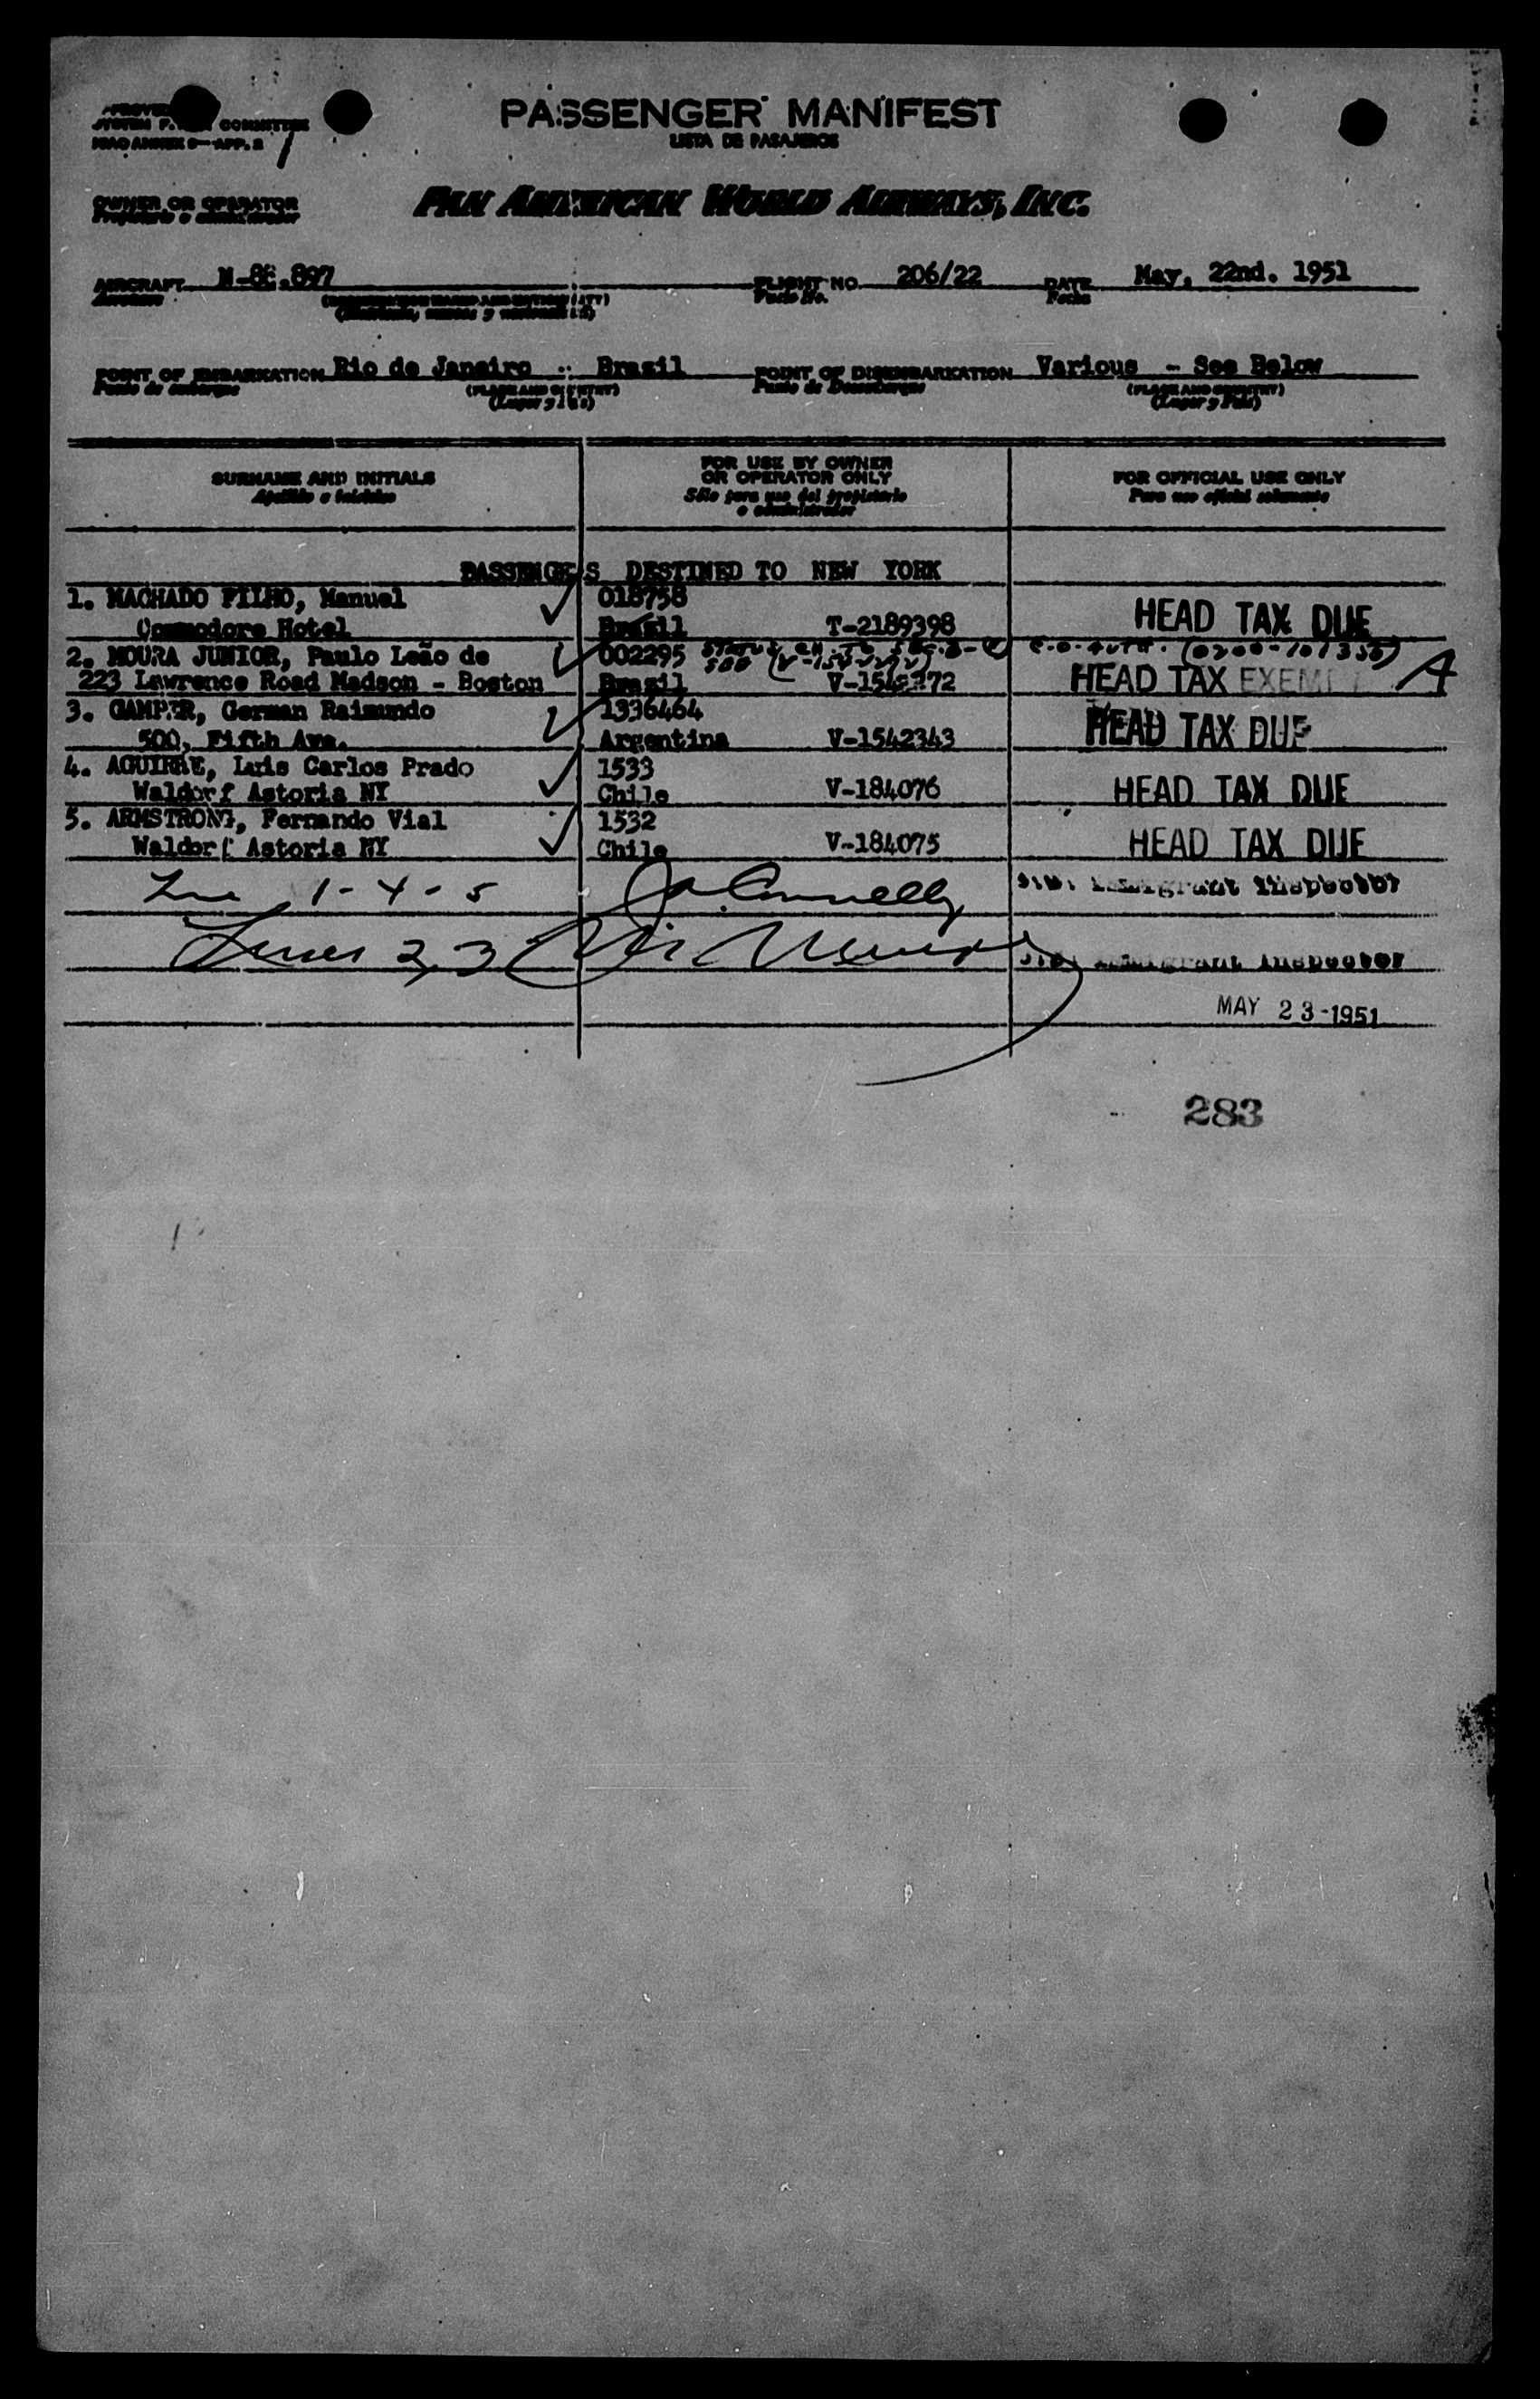 COMMITTEE
ICAO ANNEX 9—APP. 2
PASSENGER MANIFEST
LISTA DE PASAJEROS
OWNER OR OPERATOR
Propietario o administrador
PAN AMERICAN WORLD AIRWAYS, INC.
AIRCRAFT
FLIGHT NO. 206/22 DATE May, 22nd. 1951
Vuelo No. Fecha
POINT OF EMBARKATION Rio de Janeiro - Brazil POINT OF DISEMBARKATION Various - See Below
Punto de embarque (PLACE AND COUNTRY) Punto de Desembarque (PLACE AND COUNTRY)
(Lugar y País) (Lugar y País)
SURNAME AND INITIALS FOR USE BY OWNER OR OPERATOR ONLY FOR OFFICIAL USE ONLY
Apellido e iniciales Sólo para uso del propietario o administrador Para uso oficial solamente
PASSENGERS DESTINED TO NEW YORK
1. MACHADO FILHO, Manuel 018758
Commodore Hotel Brazil T-2189398 HEAD TAX DUE
2. MOURA JUNIOR, Paulo Leão de 002295
223 Lawrence Road Madson - Boston Brazil HEAD TAX EXEMPT A
3. GAMPER, German Raimundo 1336464
500, Fifth Ave. Argentina V-1542343 HEAD TAX DUE
4. AGUIRRE, Luis Carlos Prado 1533
Waldorf Astoria NY Chile V-184076 HEAD TAX DUE
5. ARMSTRONG, Fernando Vial 1532
Waldorf Astoria NY Chile V-184075 HEAD TAX DUE
1-4-5 Immigrant Inspector
Lines 2, 3 Immigrant Inspector
MAY 23-1951
283